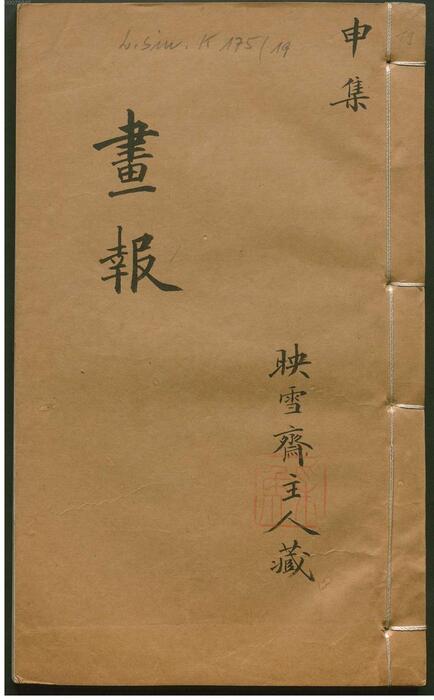 L. sin. K 175/19
申集
畫報
映雪齋主人藏